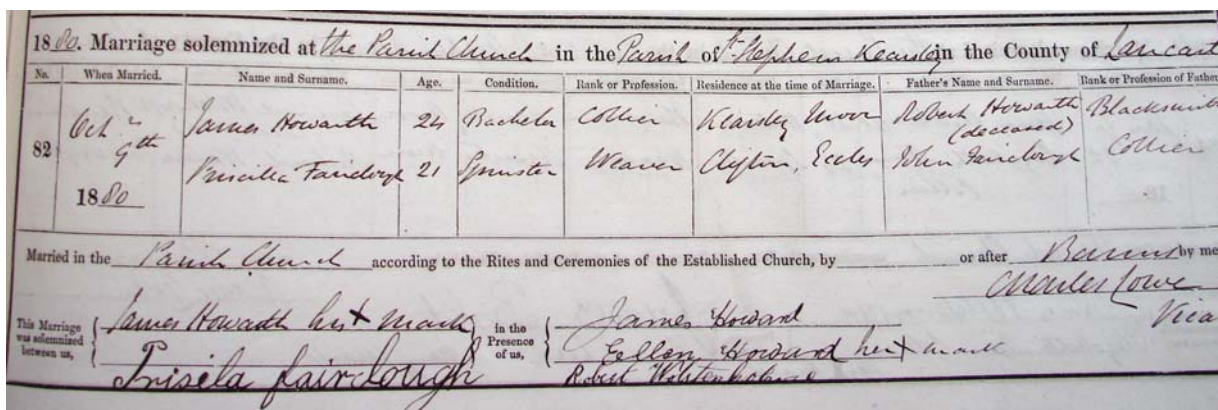 1880. Marriage solemnized at the Parish Church in the Parish of St Stephen Kearsley in the County of Lancast
No. When Married. Name and Surname. Age. Condition. Rank or Profession. Residence at the time of Marriage. Father's Name and Surname. Rank or Profession of Father
82 Oct 9th 1880 James Howarth 24 Bachelor Collier Kearsley Moor Robert Howarth (deceased) Blacksmith
Priscilla Fairclough 21 Spinster Weaver Clifton, Eccles John Fairclough Collier
Married in the Parish Church according to the Rites and Ceremonies of the Established Church, by or after Banns by me
Charles Lowe
Vica
This Marriage was solemnized between us, James Howarth his X mark in the Presence of us, James Howard
Prisela fairclough Eellen Howard her X mark
Robert Wolstenholme